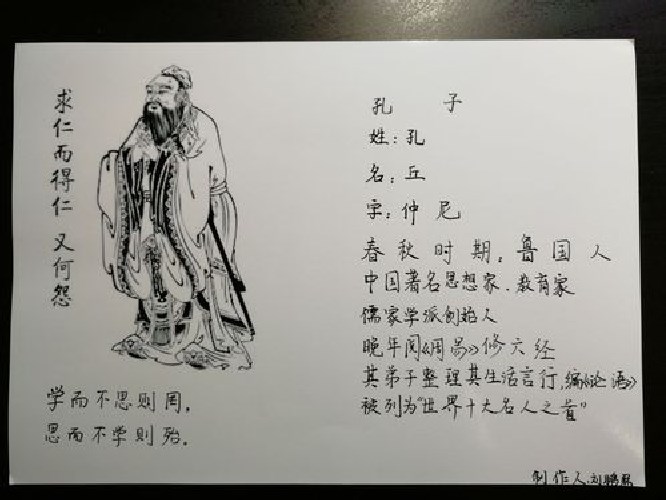 求仁而得仁 又何怨
学而不思则罔,
思而不学则殆.
孔 子
姓:孔
名:丘
字:仲尼
春秋时期,鲁国人
中国著名思想家、教育家
儒家学派创始人
晚年阅《周易》修六经
其弟子整理其生活言行,编《论语》
被列为"世界十大名人之首"
制作人:刘